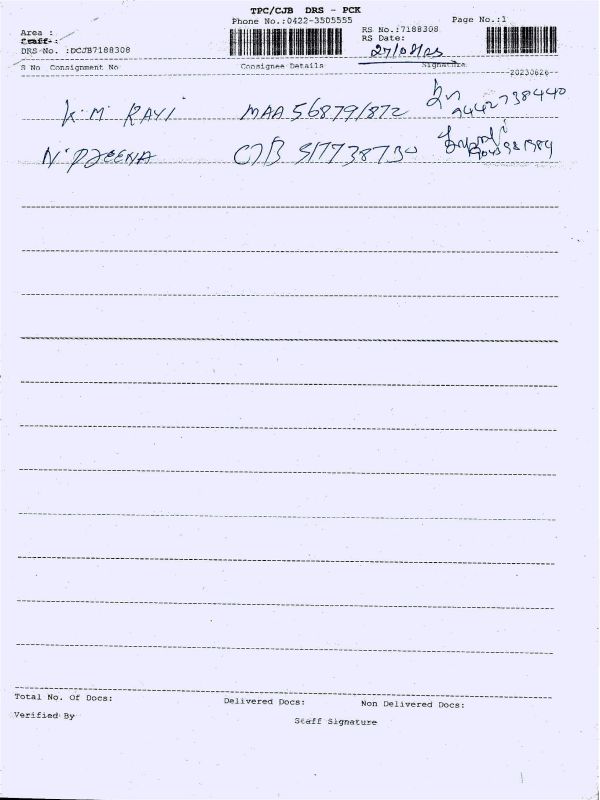 TPC/CJB DRS - PCK
Phone No.:0422-3505555
Page No.:1
Area :
RS No.:7188308
Staff :
RS Date:
27/08/23
DRS No. :DCJB7188308
S No Consignment No Consignee Details Signature
20230626
K.M. RAVI MAA 568791872 9442738440
N. PREENA CJB 517738730
Total No. Of Docs: Delivered Docs: Non Delivered Docs:
Verified By
Staff Signature